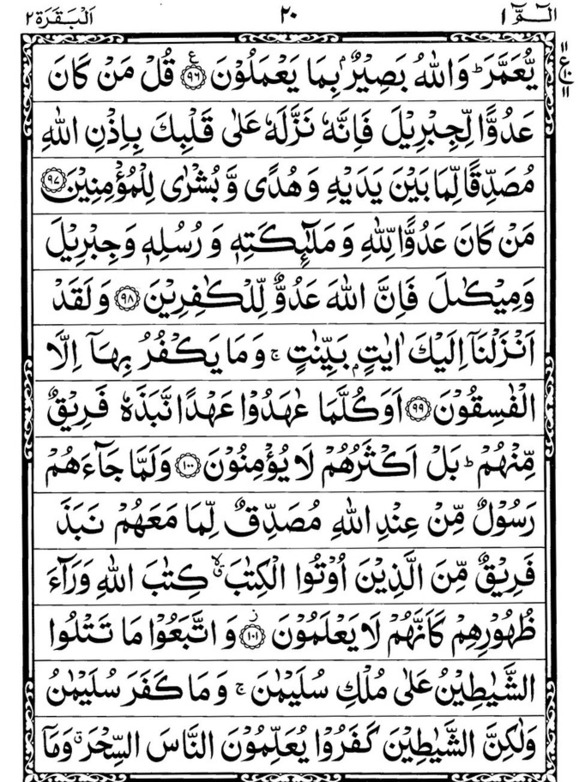 الٓمّٓ ١ ٢٠ اَلْبَقَرَة ٢
يُّعَمَّرَ ؕ وَاللّٰهُ بَصِيْرٌۢ بِمَا يَعْمَلُوْنَ ۧ﴿۹۶﴾ قُلْ مَنْ كَانَ
عَدُوًّا لِّجِبْرِيْلَ فَاِنَّهٗ نَزَّلَهٗ عَلٰى قَلْبِكَ بِاِذْنِ اللّٰهِ
مُصَدِّقًا لِّمَا بَيْنَ يَدَيْهِ وَهُدًى وَّبُشْرٰى لِلْمُؤْمِنِيْنَ ﴿۹۷﴾
مَنْ كَانَ عَدُوًّا لِّلّٰهِ وَمَلٰٓئِكَتِهٖ وَرُسُلِهٖ وَجِبْرِيْلَ
وَمِيْكٰىلَ فَاِنَّ اللّٰهَ عَدُوٌّ لِّلْكٰفِرِيْنَ ﴿۹۸﴾ وَلَقَدْ
اَنْزَلْنَاۤ اِلَيْكَ اٰيٰتٍۭ بَيِّنٰتٍ ۚ وَمَا يَكْفُرُ بِهَاۤ اِلَّا
الْفٰسِقُوْنَ ﴿۹۹﴾ اَوَكُلَّمَا عٰهَدُوْا عَهْدًا نَّبَذَهٗ فَرِيْقٌ
مِّنْهُمْ ؕ بَلْ اَكْثَرُهُمْ لَا يُؤْمِنُوْنَ ﴿۱۰۰﴾ وَلَمَّا جَآءَهُمْ
رَسُوْلٌ مِّنْ عِنْدِ اللّٰهِ مُصَدِّقٌ لِّمَا مَعَهُمْ نَبَذَ
فَرِيْقٌ مِّنَ الَّذِيْنَ اُوْتُوا الْكِتٰبَ ۙۗ كِتٰبَ اللّٰهِ وَرَآءَ
ظُهُوْرِهِمْ كَاَنَّهُمْ لَا يَعْلَمُوْنَ ؗ﴿۱۰۱﴾ وَاتَّبَعُوْا مَا تَتْلُوا
الشَّيٰطِيْنُ عَلٰى مُلْكِ سُلَيْمٰنَ ۚ وَمَا كَفَرَ سُلَيْمٰنُ
وَلٰكِنَّ الشَّيٰطِيْنَ كَفَرُوْا يُعَلِّمُوْنَ النَّاسَ السِّحْرَ ۗ وَمَاۤ